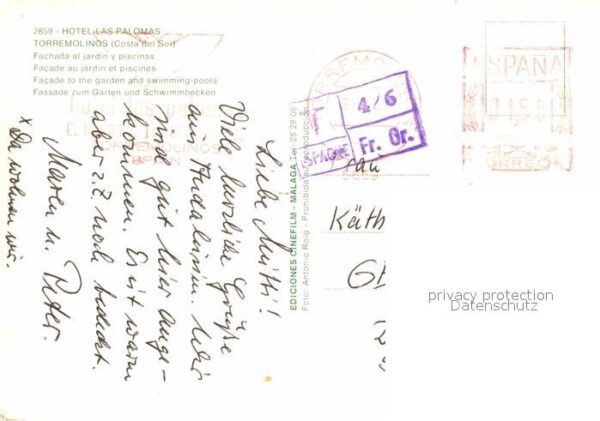 2859 - HOTEL LAS PALOMAS
TORREMOLINOS (Costa del Sol)
Fachada al jardin y piscinas
Façade au jardin et piscines
Façade to the garden and swimming-pools
Fassade zum Garten und Schwimmbecken
Liebe Mutti!
Viele herzliche Grüße
aus Andalusien. Wir
sind gut hier ange-
kommen. Es ist warm
aber z.Z. noch bedeckt.
Maren u. Peter.
x Da wohnen wir.
EDICIONES CINEFILM - MALAGA Tel. 25 29 06
Foto: Antonio Roig - Prohibida la reproducción
ESPAÑA
CORREOS
TORREMOLINOS
T
4/6
ESPAGNE
Fr. Gr.
rau
Käth
privacy protection
Datenschutz